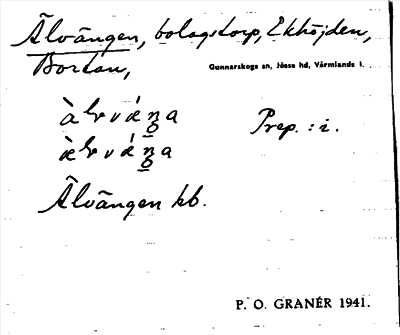 Älvängen, bolagstorp, Ekhöjden,
Bortan,
Gunnarskogs sn, Jösse hd, Värmlands l.
Prep. : i.
Älvängen kb.
P. O. GRANÉR 1941.